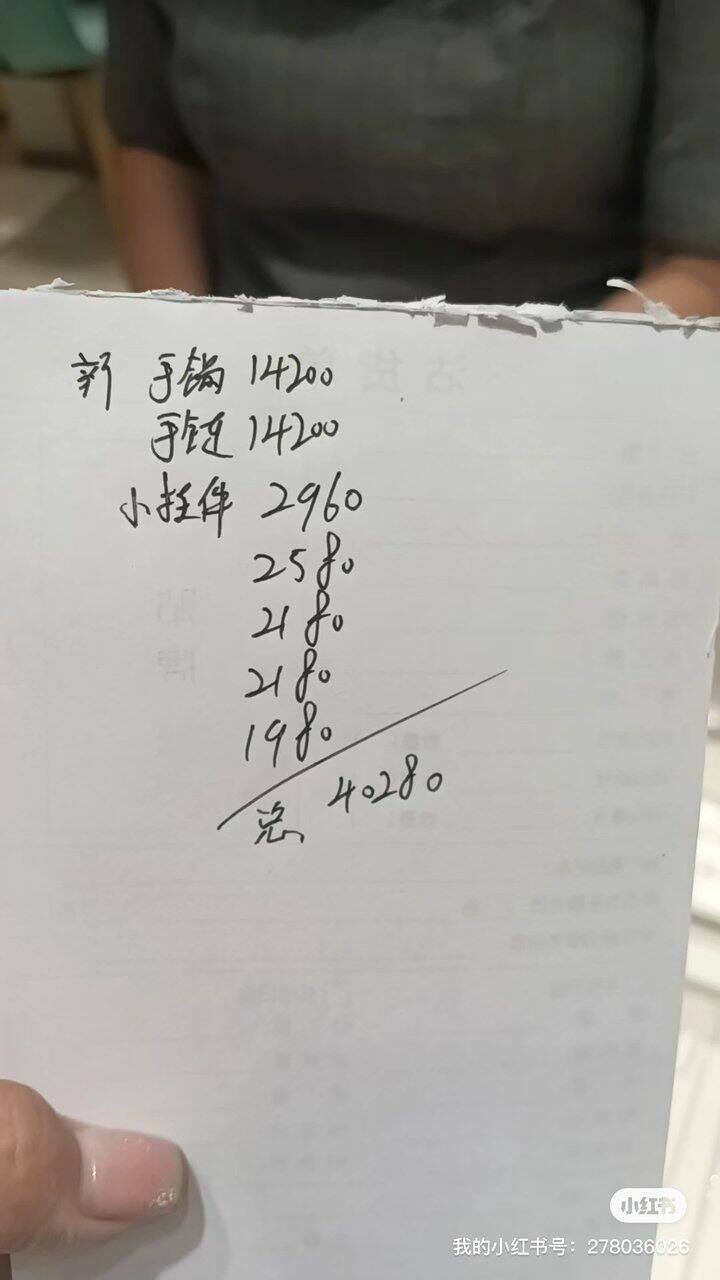 新 手镯 14200
手链 14200
小挂件 2960
2580
2180
2180
1980
总 40280
小红书
我的小红书号：278036026